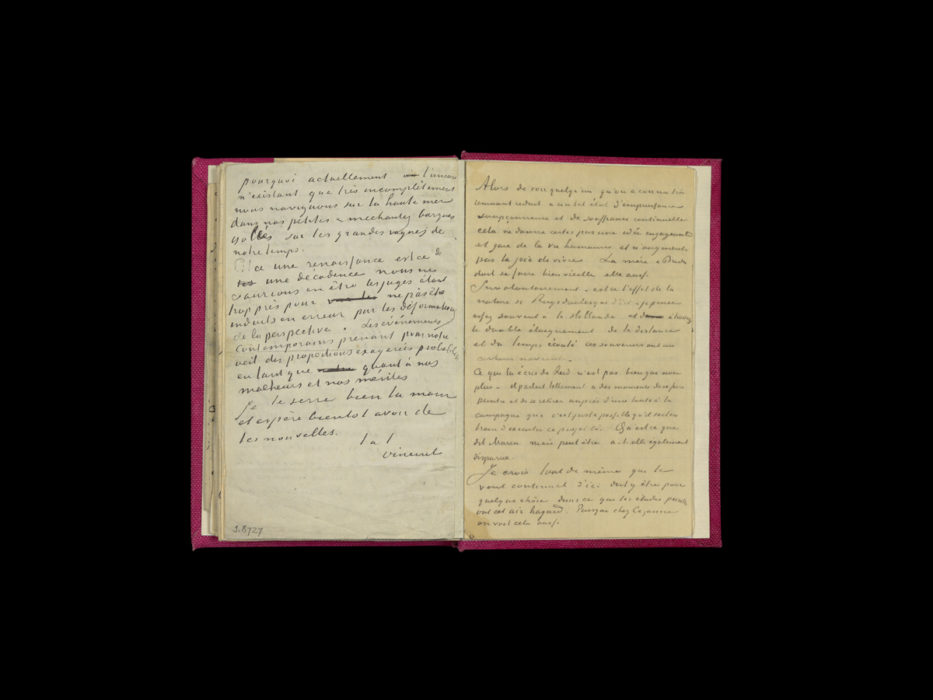 pourquoi actuellement l'union
n'existant que très incomplètement
nous naviguons sur la haute mer
dans nos petites & mechantes barques
isolés sur les grandes vagues de
notre temps.
Est ce une renaissance est ce
une décadence nous ne
saurions en être les juges étant
trop près pour ne pas être
enduits en erreur par les déformations
de la perspective. Les évènements
contemporains prenant pour notre
oeil des proportions exagerées probables
en tant que quant à nos
malheurs et nos mérites
Je te serre bien la main
et espère bientot avoir de
tes nouvelles.
t. à. t.
Vincent
S.8727
Alors de voir quelqu'un qu'on a connu
reduit à un tel état d'impuissance
soupçonneuse et de souffrance continuelle
cela ne donne certes pas une idée engageante
et gaie de la vie humaine et n'augmente
pas la joie de vivre. La mère à Breda
doit se faire bien vieille elle aussi.
Involontairement - est ce l'effet de la
nature si Ruysdaelesque d'ici - je pense
assez souvent à la Hollande et à travers
le double éloignement de la distance
et du temps écoulé ces souvenirs ont un
certain navrant.
Ce que tu écris de Reid n'est pas bien gai non
plus - il parlait tellement à des moments de se faire
peintre et de se retirer auprès d'une tante à la
campagne que c'est juste possible qu'il soit en
train d'executer ce projet là. Qu'est ce que
dit Maria mais peut être a t elle également
disparue.
Je crois tout de même que le
vent continuel d'ici doit y être pour
quelque chose dans ce que les études peintes
ont cet air hagard. Puisque chez Cezanne
on voit cela aussi.